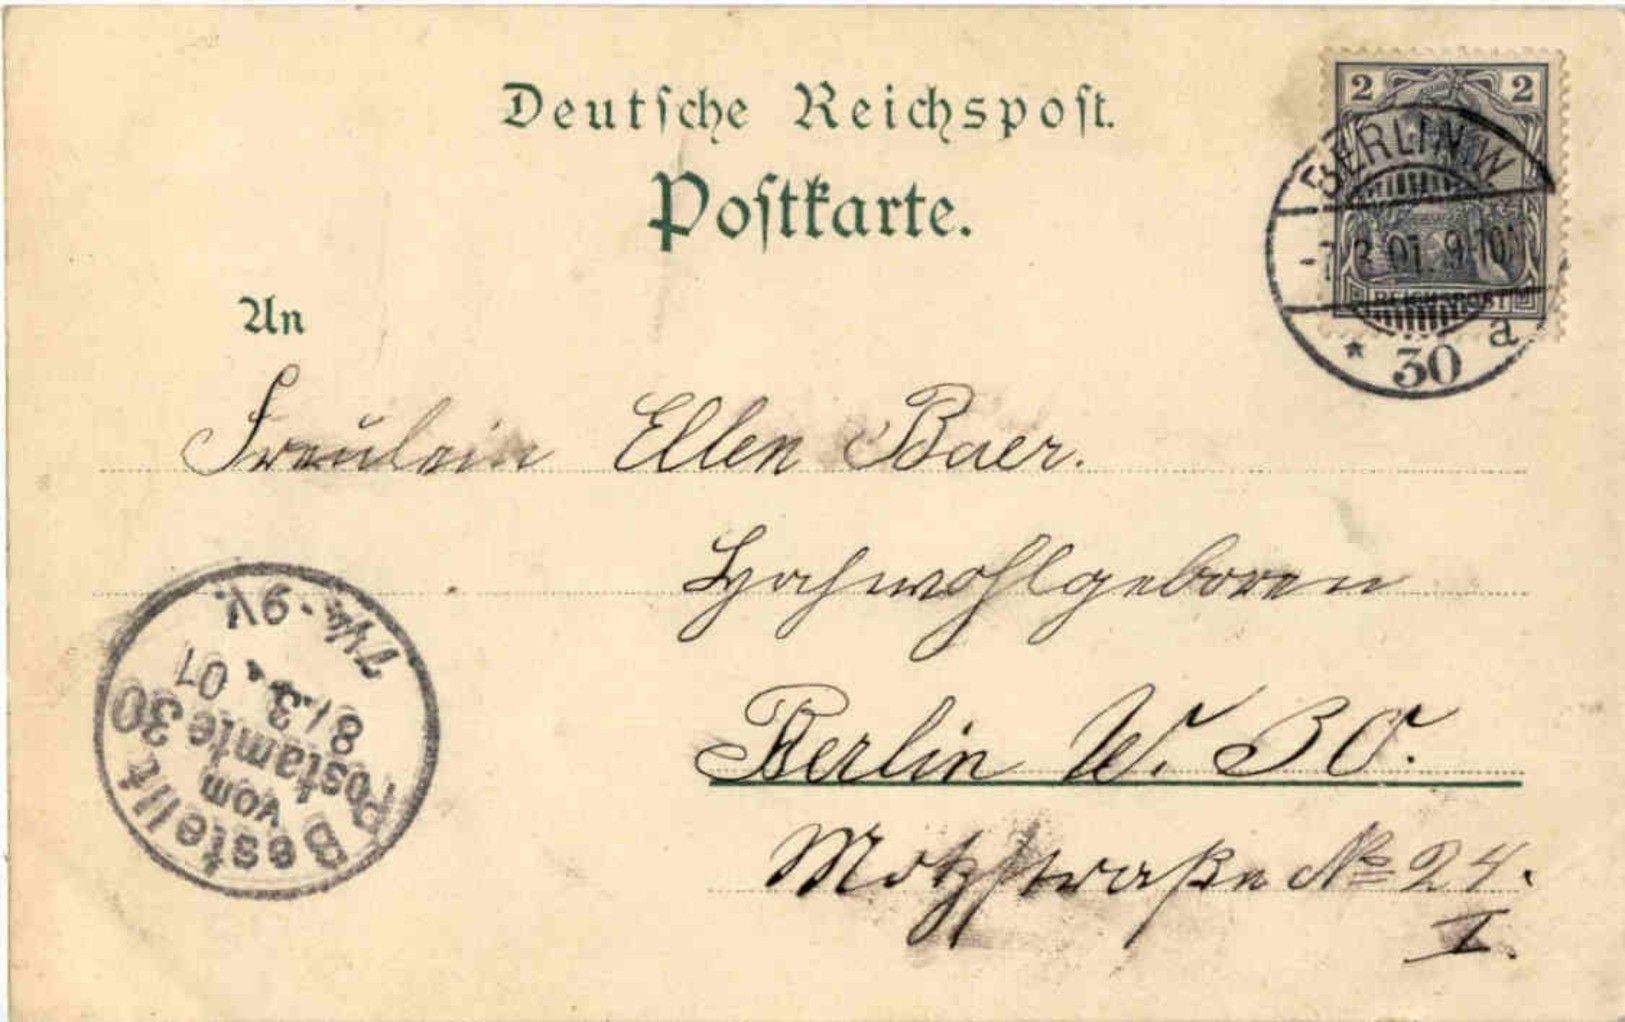 Deutsche Reichspost.
Postkarte.
2 2
BERLIN W.
-7.3.01. 9-10
REICHSPOST
* 30 a
An
Fräulein Ellen Baer.
Hochwohlgeboren
Berlin W. 30.
Motzstraße No 24.
I.
Bestellt
vom
Postamte 30
8/.3. 01
7¼-9V.